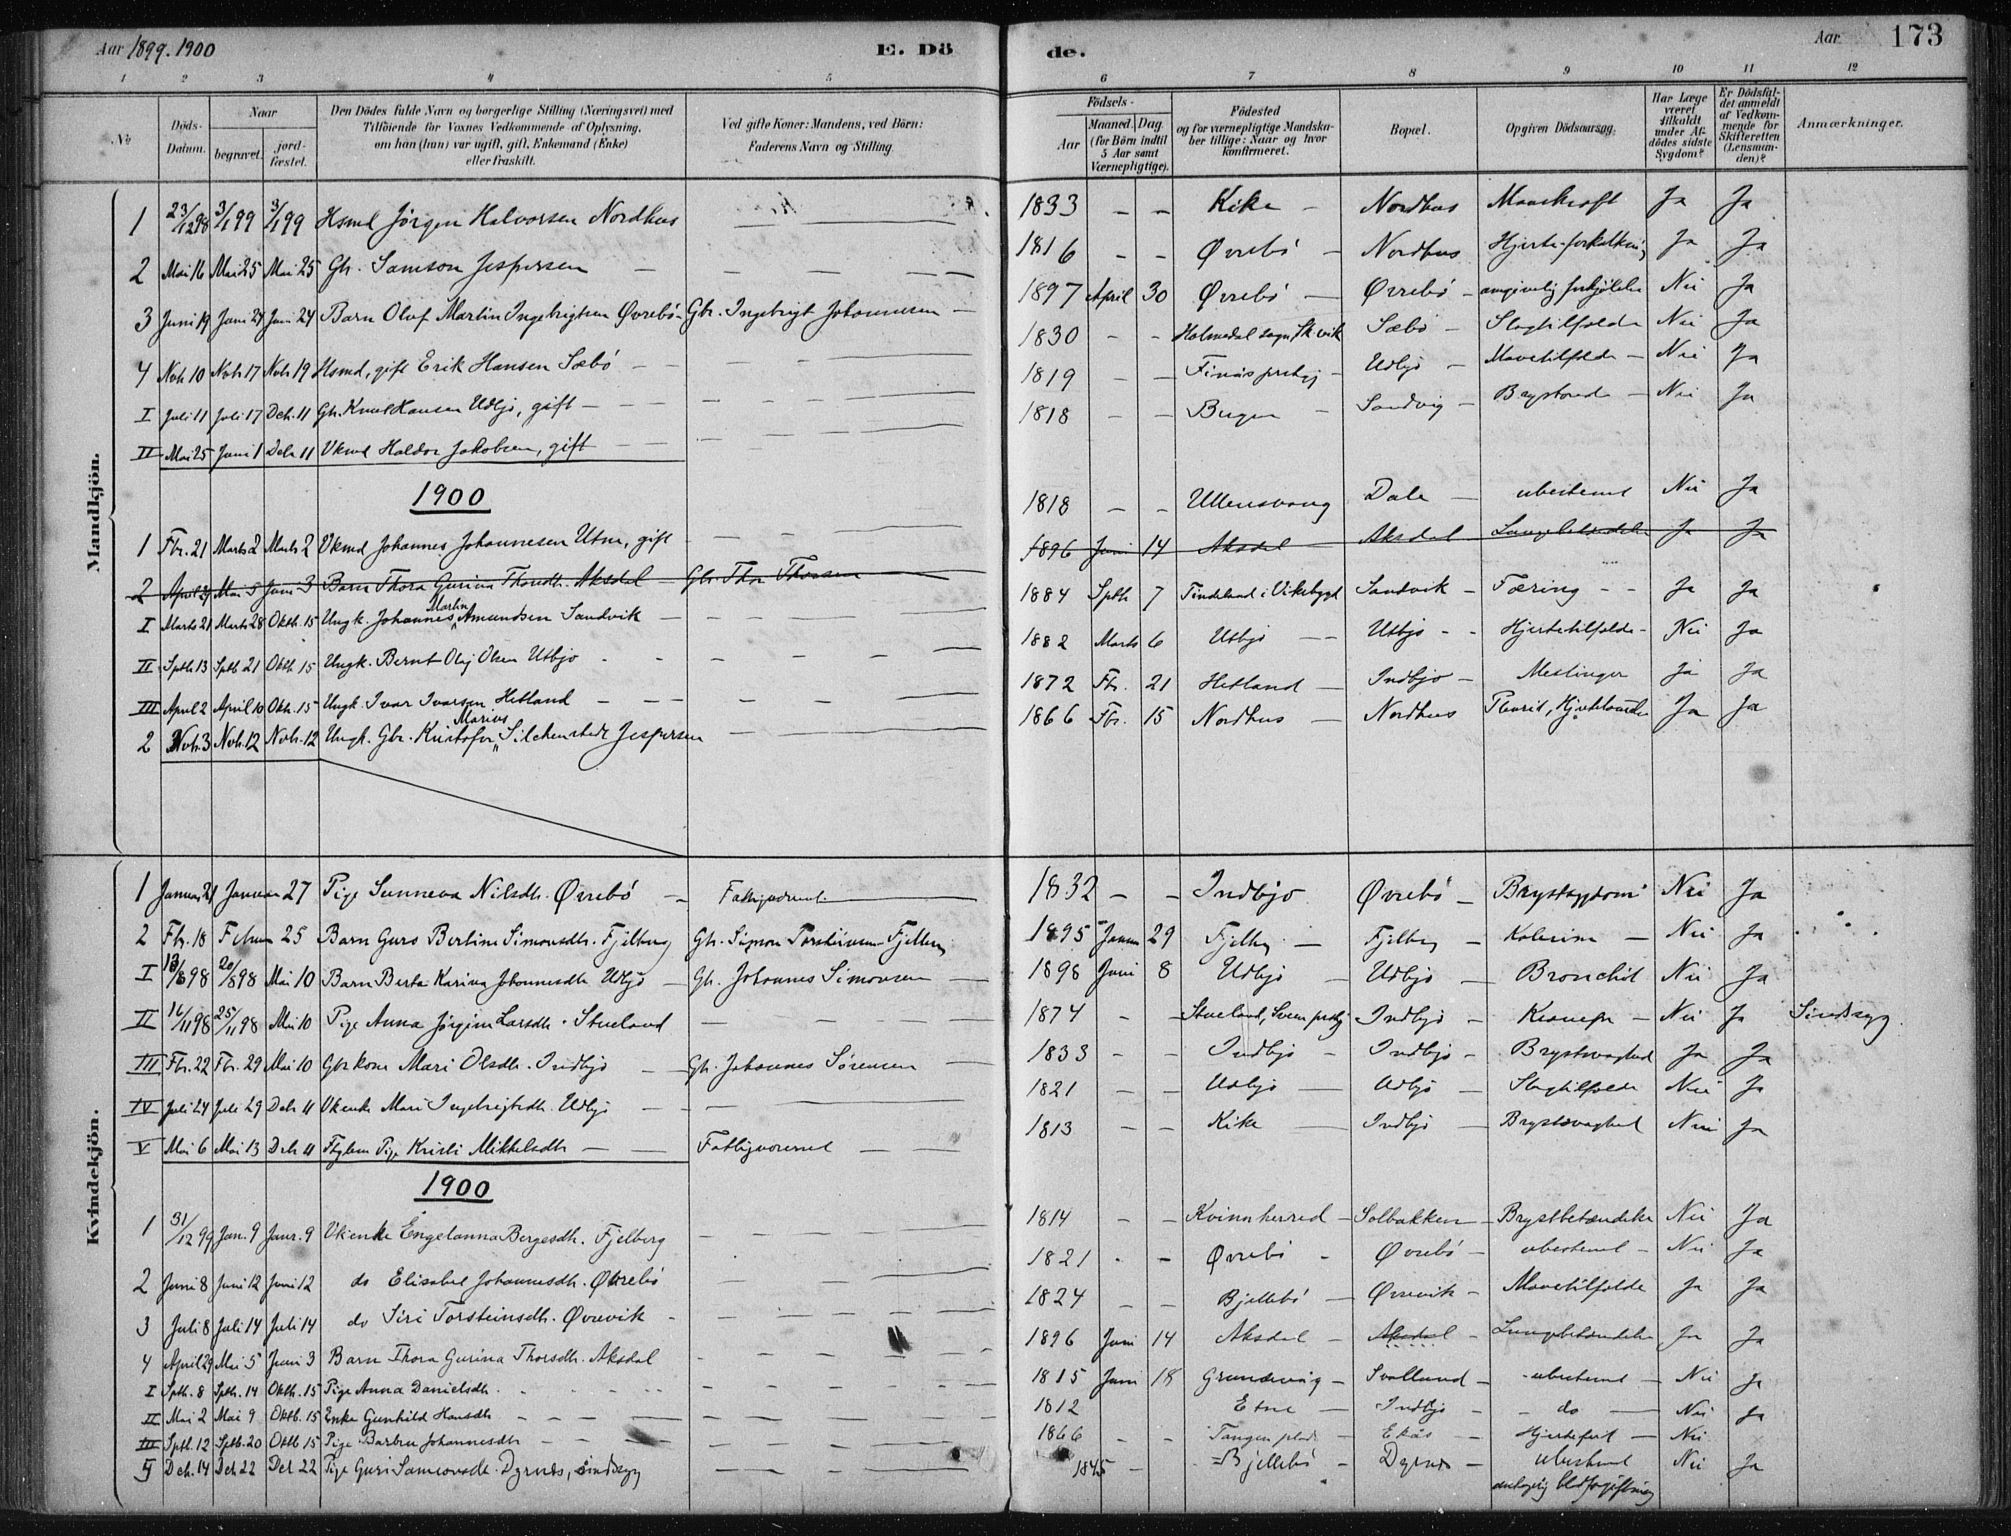 Aar 1899. 1900 E. Dö de. Aar 173
1 2 3 4 5 6 7 8 9 10 11 12
No
Döds-Datum.
Naar begravet. jordfæstet.
Den Dödes fulde Navn og borgerlige Stilling (Næringsvei) med Tilföiende for Voxnes Vedkommende af Oplysning, om han (hun) var ugift, gift, Enkemand (Enke) eller fraskilt.
Ved gifte Koner: Mandens, ved Börn: Faderens Navn og Stilling.
Födsels- Aar Maaned. Dag (for Börn indtil 5 Aar samt Værnepligtige).
Födested og for værnepligtige Mandskaber tillige: Naar og hvor konfirmeret.
Bopæl.
Opgiven Dödsaarsag.
Har Læge været tilkaldt under Afdödes sidste Sygdom?
Er Dödsfaldet anmeldt af Vedkommende for Skifteretten (Lensmanden)?
Anmærkninger.
Mandkjön.
1 23/12 98 3/1 99 3/1 99 Hsmd Jørgen Halvorsen Nordhus 1833 – – Kike – Nordhus Mavekræft Ja Ja
2 Mai 16 Mai 25 Mai 25 Gbr. Samson Jespersen 1816 – – Øvrebö – Nordhus Hjerteforkalkning Ja Ja
3 Juni 19 Juni 24 Juni 24 Barn Olaf Martin Ingebrigtsen Øvrebö Gbr. Ingebrigt Johannesen 1897 April 30 Øvrebö – Øvrebö – angivelig forkjölelse Nei Ja
4 Novb 10 Novb 17 Novb 19 Hsmd, gift Erik Hansen Sæbö 1830 – – Holmedal sogn Sk.vik Sæbö – Slagtilfælde Nei Ja
I Juli 11 Juli 17 Dcb. 11 Gbr. Knud Hansen Udbjo, gift 1819 – – Finnås prstgj – Udbjo – Mavetilfælde – Nei Ja
II Mai 25 Juni 1 Dcb 11 Vkmd Haldor Jakobsen, gift 1818 – – Bergen – Sandvig – Brystonde – Nei Ja
1900
1 Fbr. 21 Marts 2 Marts 2 Vkmd Johannes Johannesen Utne, gift 1818 – – Ullensvang Dale – ubestemt Nei Ja
2 April 29 Mai 5 Juni 3 Barn Thora Gurina Thorsdtr. Aksdal Gbr. Thor Thorsen 1896 Juni 14 Aksdal Aksdal Lungebetændelse Ja Ja
I Marts 21 Marts 28 Oktb. 15 Ungk. Johannes Martin Amundsen Sandvik 1884 Sptb 7 Tindeland i Vikebygd Sandvik – Tæring – – Ja Ja
II Sptb 13 Sptb 21 Oktb 15 Ungk. Bernt Olaj Olsen Utbjo 1882 Marts 6 Utbjo – Utbjo – – Hjertetilfælde – Nei Ja
III April 2 April 10 Oktb. 15 Ungk. Ivar Ivarsen Hetland 1872 Fbr. 21 Hetland – Indbjo – Meslinger Ja Ja
2 Novb. 3 Novb. 12 Novb. 12 Ungk. Gbr. Kristofer Marius Silchenstedt Jespersen 1866 Fbr. 15 Nordhus – Nordhus Pleurit, Ja Ja
Kvindekjön.
1 Januar 21 Januar 27 Pige Sunneva Nilsdtr. Øvrebö – Fattiglem 1832 – – Indbjo Øvrebö – Brystsygdom Nei Ja
2 Fbr. 18 Februar 25 Barn Guro Bertine Simonsdtr. Fjelberg Gbr. Simon Torsteinsen Fjelberg 1895 Januar 29 Fjelberg – Fjelberg – Kolerine – Nei Ja
I 13/8 98 20/8 98 Mai 10 Barn Berta Karina Johannesdtr Udbjo – Gbr. Johannes Simonsen 1898 Juni 8 Udbjo – Udbjo – Bronchit Nei Ja
II 16/11 98 25/11 98 Mai 10 Pige Anna Jörgine Larsdtr. Stueland 1874 – – Stueland, Sveen prstgj Indbjo – Nei Ja Sindssyg.
III Fbr. 22 Fbr. 29 Mai 10 Gbrkone Mari Olsdtr. Indbjo Gbr. Johannes Sörensen 1833 – – Indbjo – Indbjo – Brystsvaghed Ja Ja
IV Juli 24 Juli 29 Dcb 11 Vkenke Mari Ingebrigtsdtr. Udbjo 1821 – – Udbjo – Udbjo – Slagtilfælde Nei Ja
V Mai 6 Mai 13 Dcb 11 Pige Kristi Mikkelsdtr 1813 – – Kike – Indbjo – Brystsvaghed Nei Ja
1900
1 31/12 99 Jan. 9 Janr. 9 Vkenke Engelanna Bergesdtr. Fjelberg 1814 – – Kvinnherred – Solbakken – Brystbetændelse Nei Ja
2 Juni 8 Juni 12 Juni 12 do Elisabet Johannesdtr. Øvrebö 1821 – – Øvrebö – Øvrebö – ubestemt – Nei Ja
3 Juli 8 Juli 14 Juli 14 do Siri Torsteinsdtr. Øvrevik – 1824 – – Bjellebö – Øvrevik – Mavetilfælde Ja Ja
4 April 29 Mai 5 Juni 3 Barn Thora Gurina Thorsdtr. Aksdal 1896 Juni 14 Aksdal – Aksdal – Lungebetændelse Ja Ja
I Sptb. 8 Sptb. 14 Oktb. 15 Pige Anna Danielsdtr. 1815 Juni 18 Grundevåg – Svolland – ubestemt – Nei Ja
II Mai 2 Mai 9 Oktb. 15 Enke Gunhild Hansdtr 1812 Etne – Indbjo – – do – Nei Ja
III Sptb. 12 Sptb. 20 Oktb 15 Pige Barbru Johannesdtr 1866 – – Tangen Ekås – Hjertefeil – Nei
5 Dcb. 14 Dcb 22 Dcb 22 Pige Guri Samsonsdtr. Dyrnes, sindssyg 1845 – – Bjellebö – Dyrnes – ubestemt Nei Ja
antagelig blodforgiftning